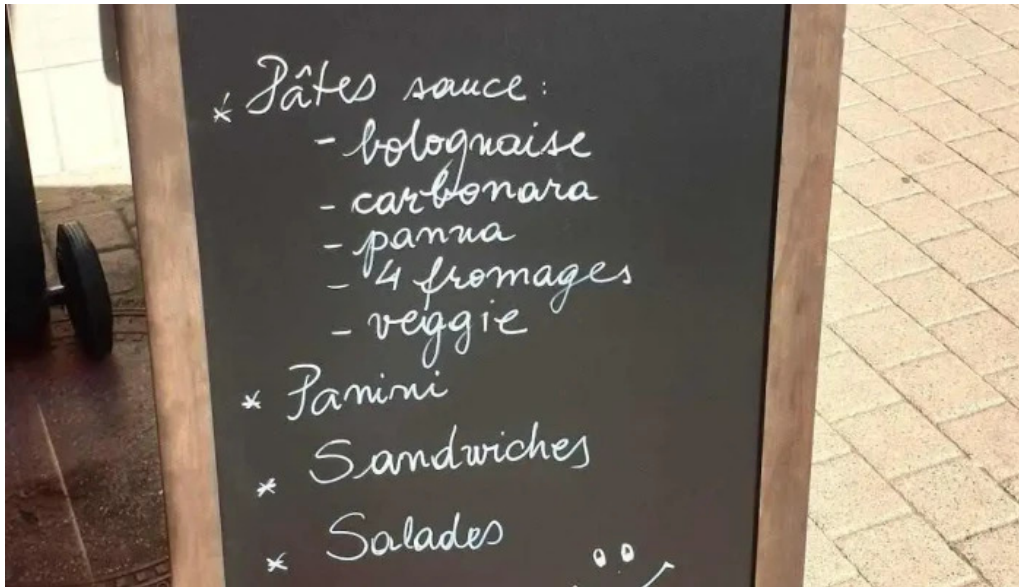 * Pâtes sauce :
- bolognaise
- carbonara
- panna
- 4 fromages
- veggie
* Panini
* Sandwiches
* Salades